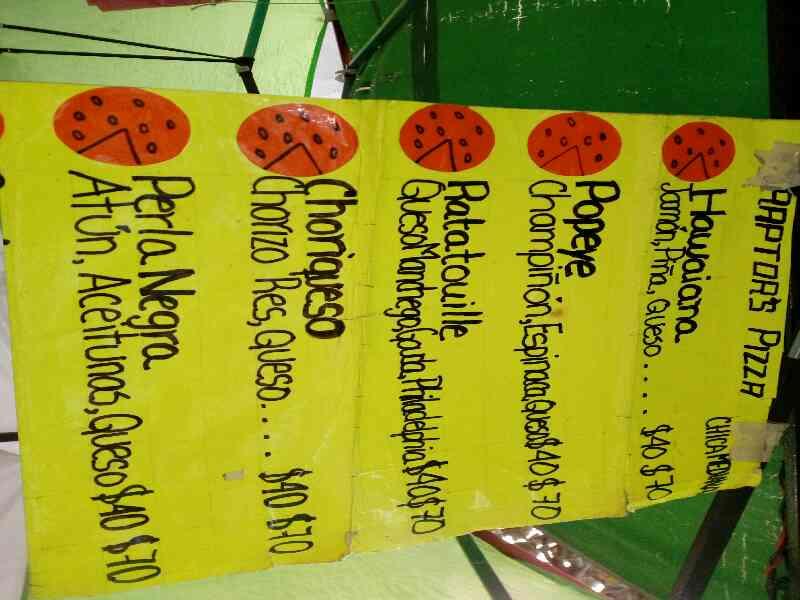 RAPTOR'S PIZZA
CHICA MEDIANA
Hawaiana
Jamón, Piña, Queso.... $40 $70
Popeye
Champiñón, Espinaca, Queso $40 $70
Ratatouille
Queso Manchego, Gouda, Philadelphia $40 $70
Choriqueso
Chorizo Res, Queso.... $40 $70
Perla Negra
Atún, Aceitunas, Queso $40 $70